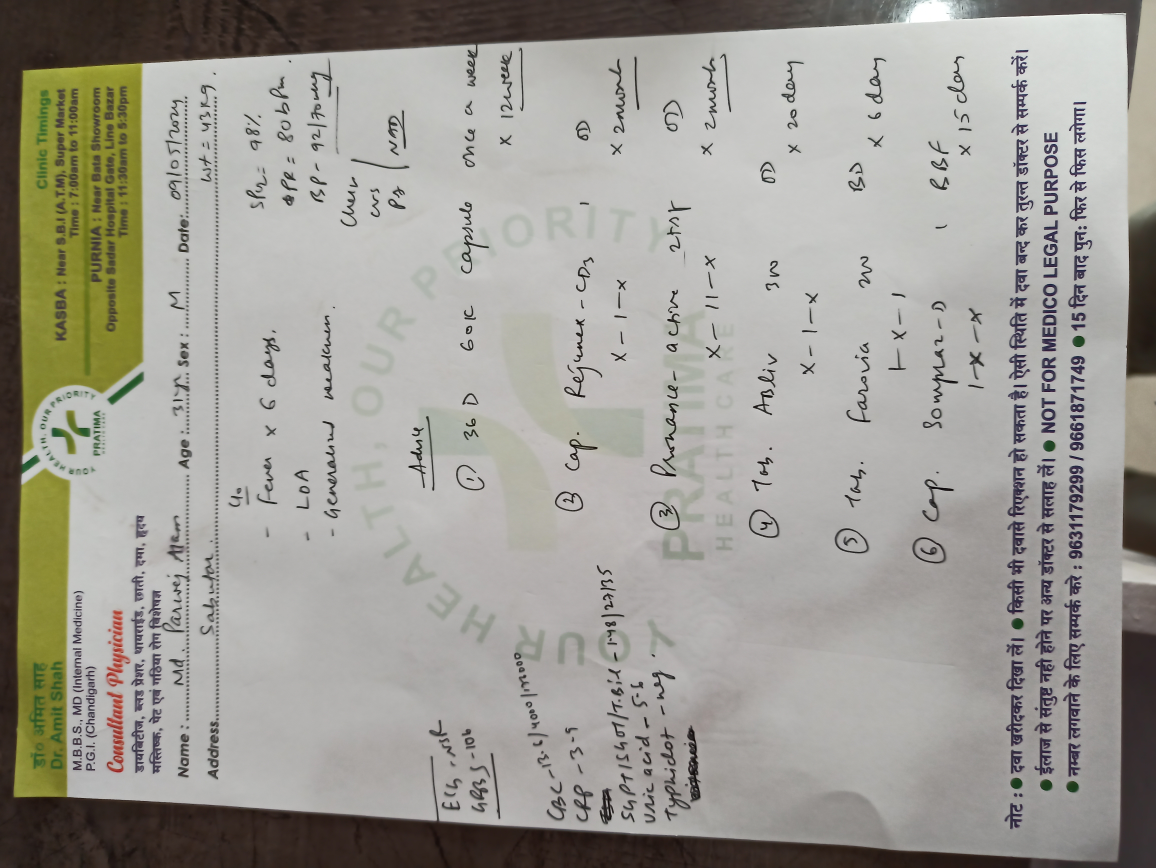 डॉ० अमित साह
Dr. Amit Shah
M.B.B.S., MD (Internal Medicine)
P.G.I. (Chandigarh)
Consultant Physician
डायबिटीज, ब्लड प्रेशर, थायराईड, छाती, दमा, हृदय
मस्तिष्क, पेट एवं गठिया रोग विशेषज्ञ
YOUR HEALTH, OUR PRIORITY
PRATIMA
Clinic Timings
KASBA : Near S.B.I (A.T.M), Super Market
Time : 7:00am to 11:00am
PURNIA : Near Bata Showroom
Opposite Sadar Hospital Gate, Line Bazar
Time : 11:30am to 5:30pm
Name : Md. Parwej Alam Age : 31yr Sex : M Date: 09/05/2024
Address Sabutar Wt = 43 Kg.
C/o
- Fever x 6 days.
- LOA
- Generalised weakness.
SPO2 = 98%
PR = 80 bpm.
BP - 92/70
Chest
CVS
PA
NAD
ECG - NSR
GRBS - 106
CBC - 13.6/4000/122000
CRP - 3.9
SGPT/SGOT/T.Bil - 1.48/27/35
Uric acid - 5.6
Typhidot - neg.
Advice
① 36 D 60K capsule once a week
x 12 week
② Cap. Rejunex - CD3 1 OD
x - 1 - x x 2 month
③ OD
x - 11 - x x 2 month
④ Tab. Abliv 300 OD
x - 1 - x x 20 day
⑤ Tab. Farovia 200 BD
1 - x - 1 x 6 day
⑥ Cap. Sompraz-D 1 BBF
1 - x - x x 15 day
YOUR HEALTH, OUR PRIORITY
PRATIMA
HEALTH CARE
नोट : ● दवा खरीदकर दिखा लें। ● किसी भी दवासे रिएक्शन हो सकता है। ऐसी स्थिति में दवा बन्द कर तुरन्त डॉक्टर से सम्पर्क करें।
● ईलाज से संतुष्ट नही होने पर अन्य डॉक्टर से सलाह लें। ● NOT FOR MEDICO LEGAL PURPOSE
● नम्बर लगवाने के लिए सम्पर्क करे : 9631179299 / 9661871749 ● 15 दिन बाद पुन: फिर से फिस लगेगा।